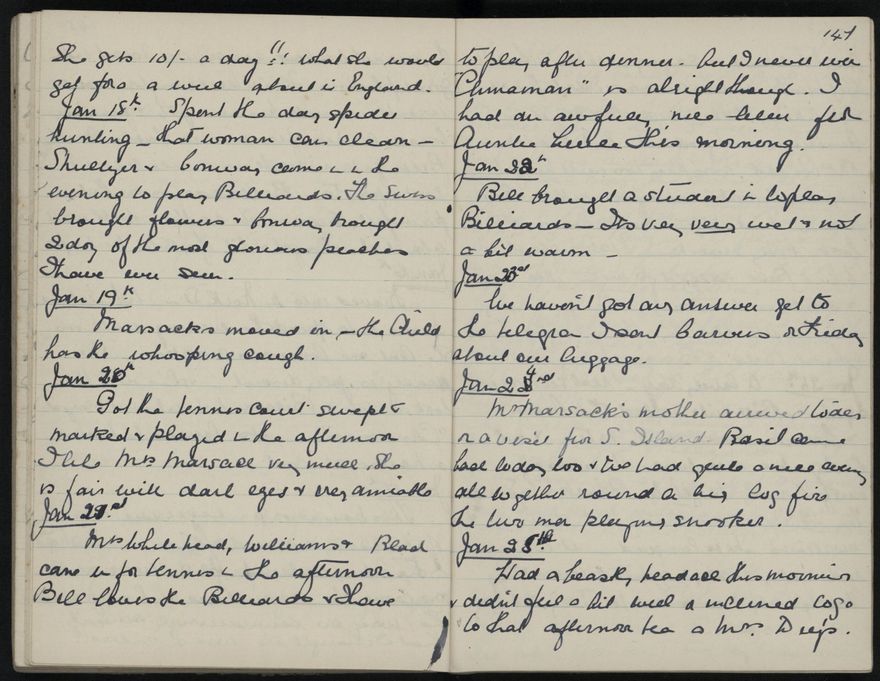 She gets 10/- a day!! what she would
get for a week about in England.
Jan 18th Spent the day spider
hunting - that woman can clean -
Shultzer & Conway came in in the
evening to play Billiards. The Swiss
brought flowers & Conway brought
2 doz of the most glorious peaches
I have ever seen.
Jan 19th
Marsacks moved in, - the Child
has the whooping cough.
Jan 20th
Got the tennis court swept &
marked & played in the afternoon
I like Mrs Marsack very much. She
is fair with dark eyes & very amiable
Jan 21st
Mrs Whitehead, Williams & Read
came in for tennis in the afternoon
Bill loves the Billiards & I have
147
to play after dinner. but I never win
"Chinaman" is alright though. I
had an awfully nice letter from
Auntie this morning.
Jan 22
Bill brought a student in to play
Billiards - Its very very wet & not
a bit warm -
Jan 23rd
We haven't got any answer yet to
the telegram I sent on Friday
about our luggage.
Jan 24
Mr Marsack's mother arrived today
on a visit from S. Island. Basil came
back today too & we had quite a nice evening
all together round a big log fire
the two men playing snooker.
Jan 25th
Had a beastly headache this morning
& didn't feel a bit well & inclined to go
to that afternoon tea a Mrs.